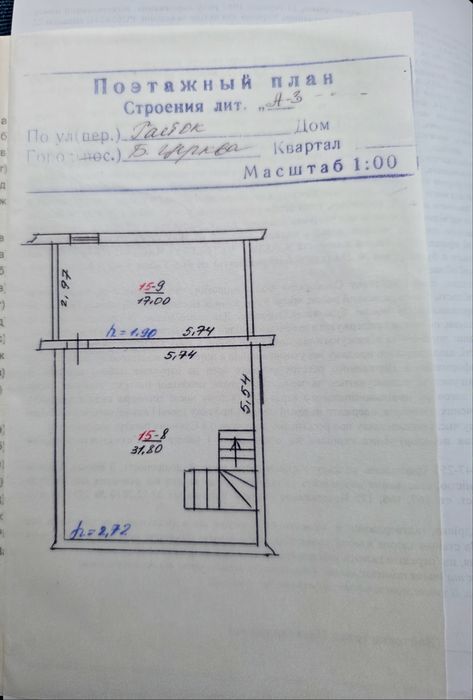 Поэтажный план
Строения лит. „А-3
По ул(пер.) Росток Дом
Б. Церква Квартал
Масштаб 1:00
2,97
15-9
17.00
h=1.90 5,74
5,74
5,54
15-8
31,80
h=2,72